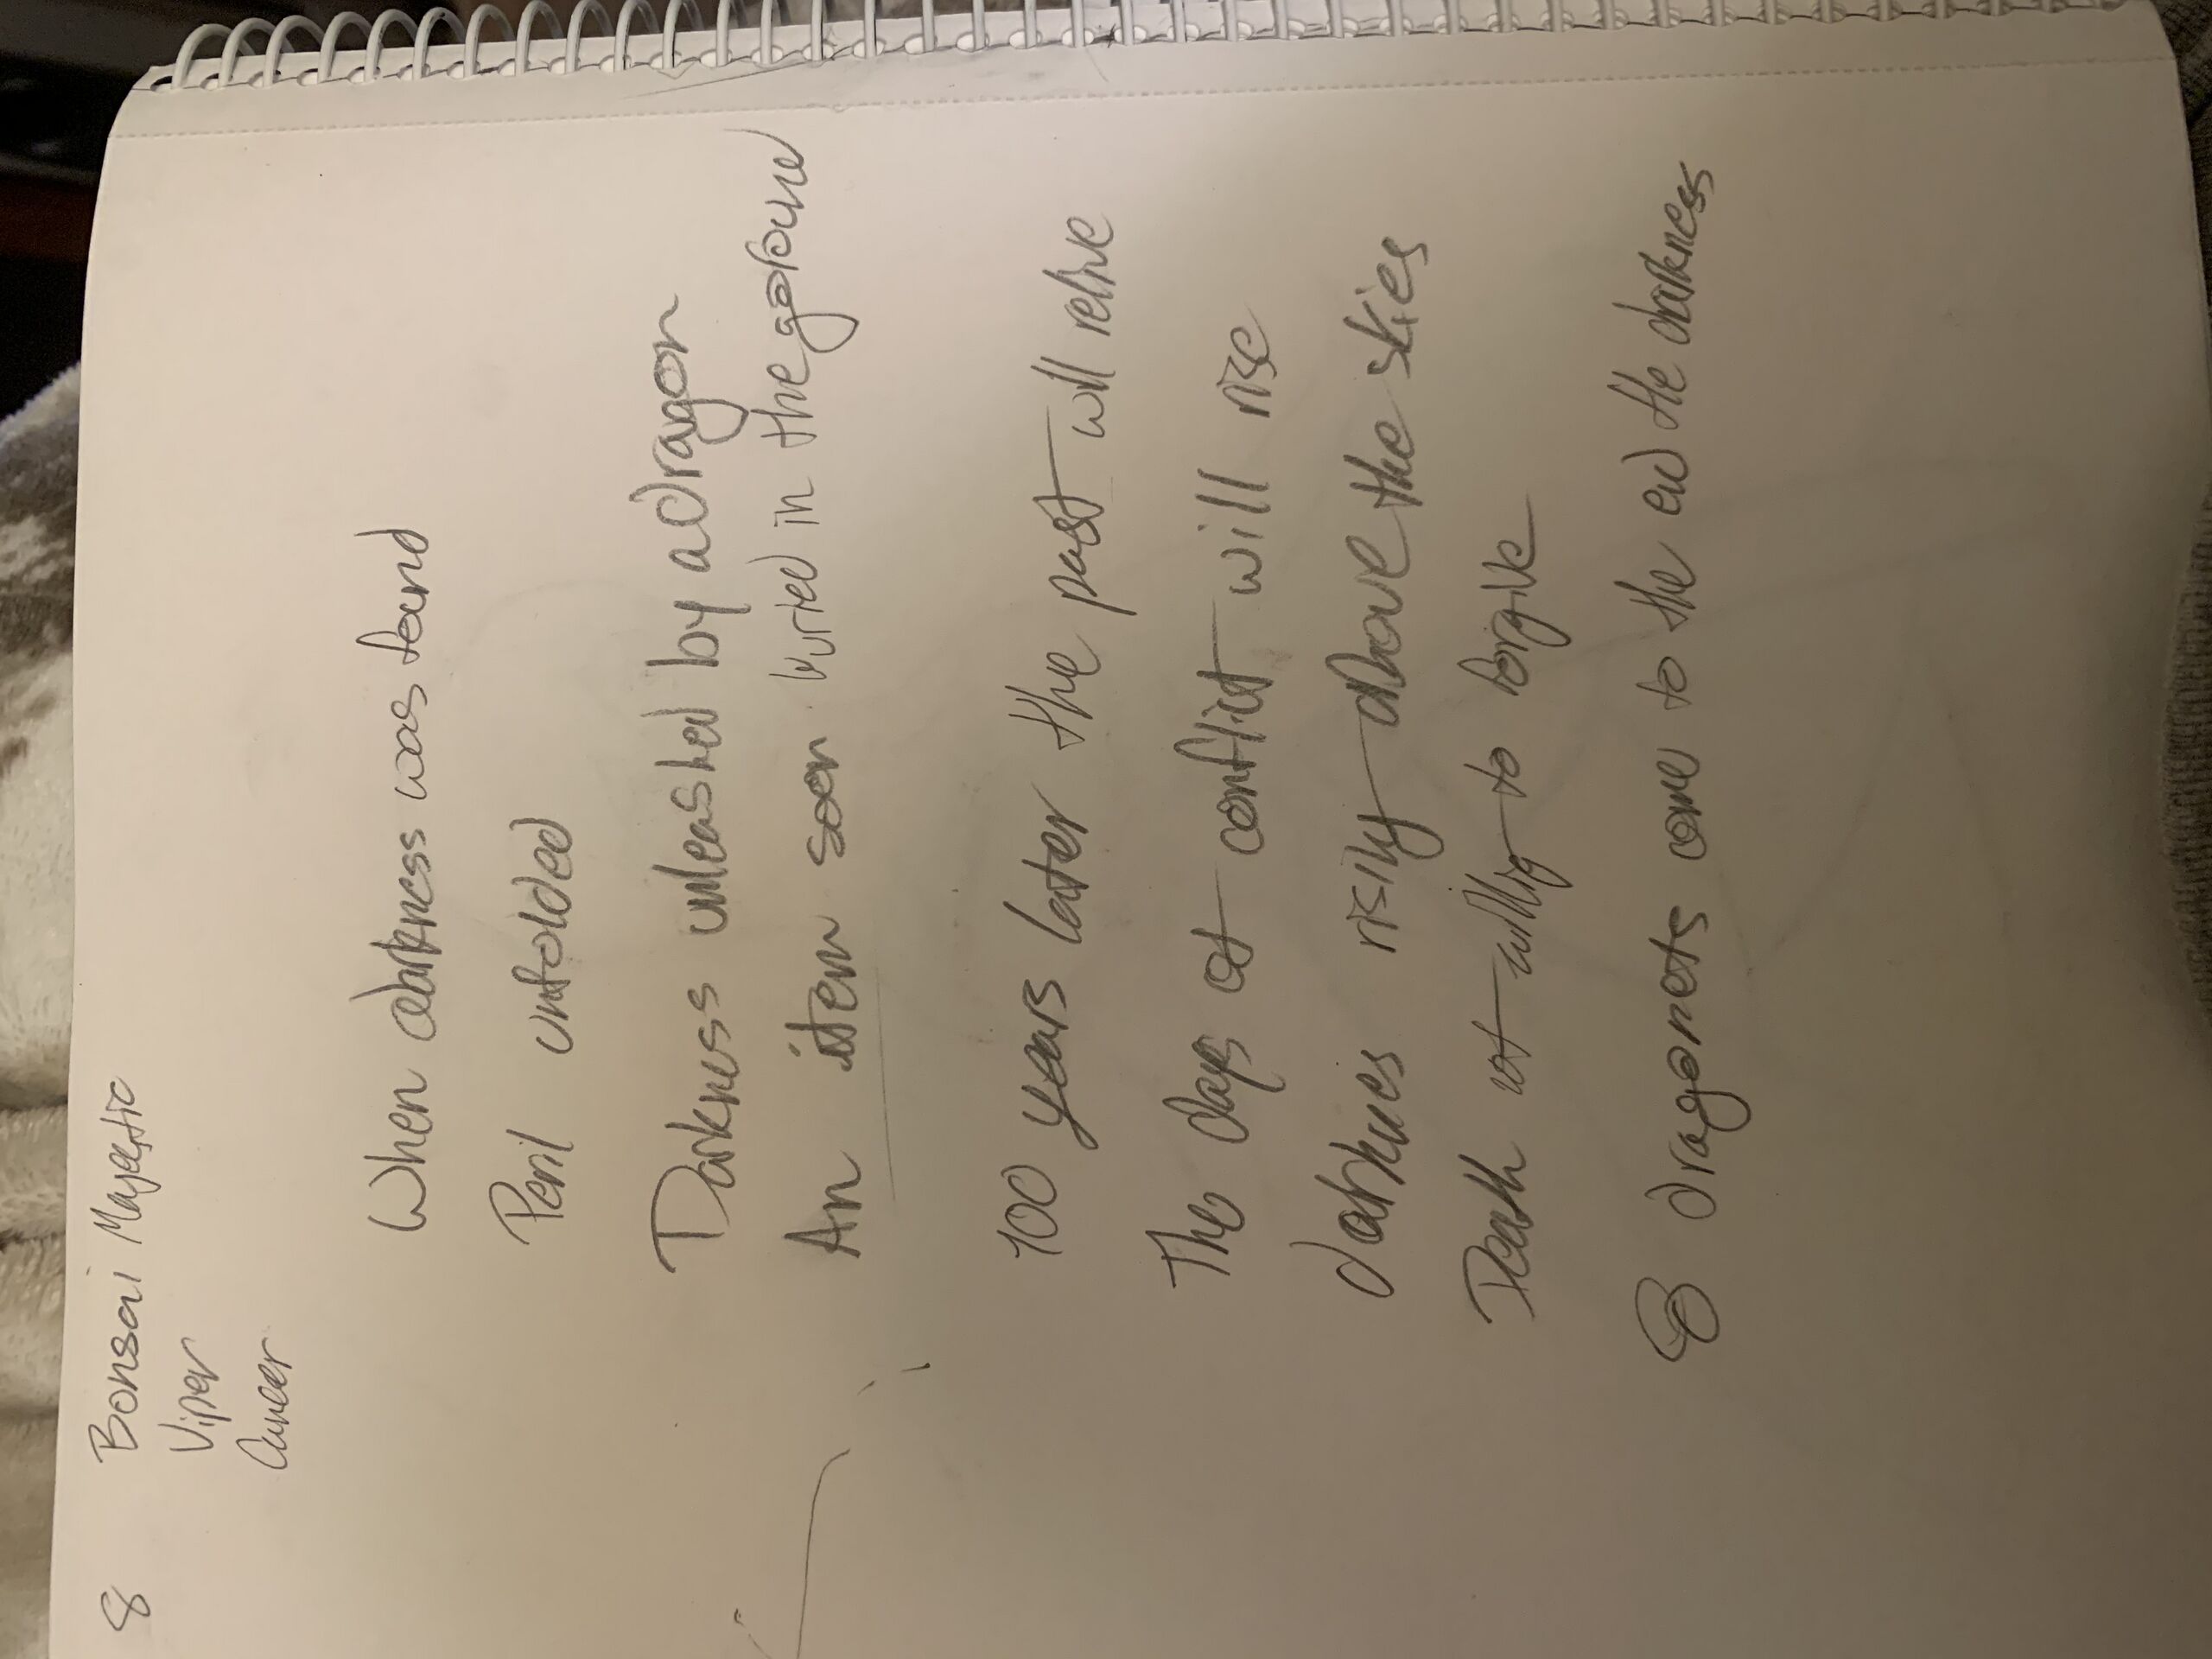 8 Bonsai Majestic
Viper
When darkness was found
Peril unfolded
Darkness unleashed by a dragon
An item soon buried in the
100 years later the past will relive
The days of conflict will rise
darknes rising above the skies
Death not willing to forgive
8 dragonets come to the end the darkness